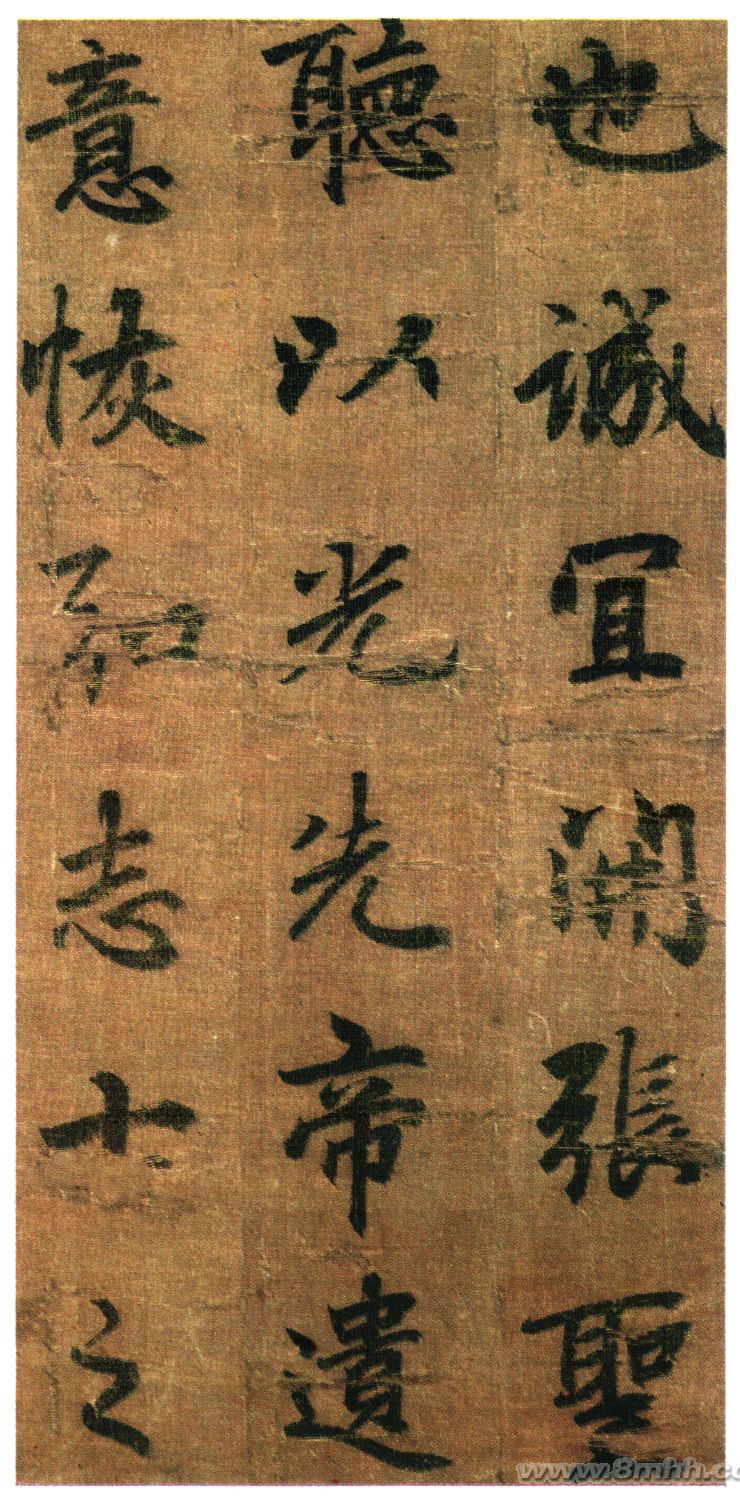 也誠宜開張聖
聽以光先帝遺
意恢弘志士之
www.8mhh.co